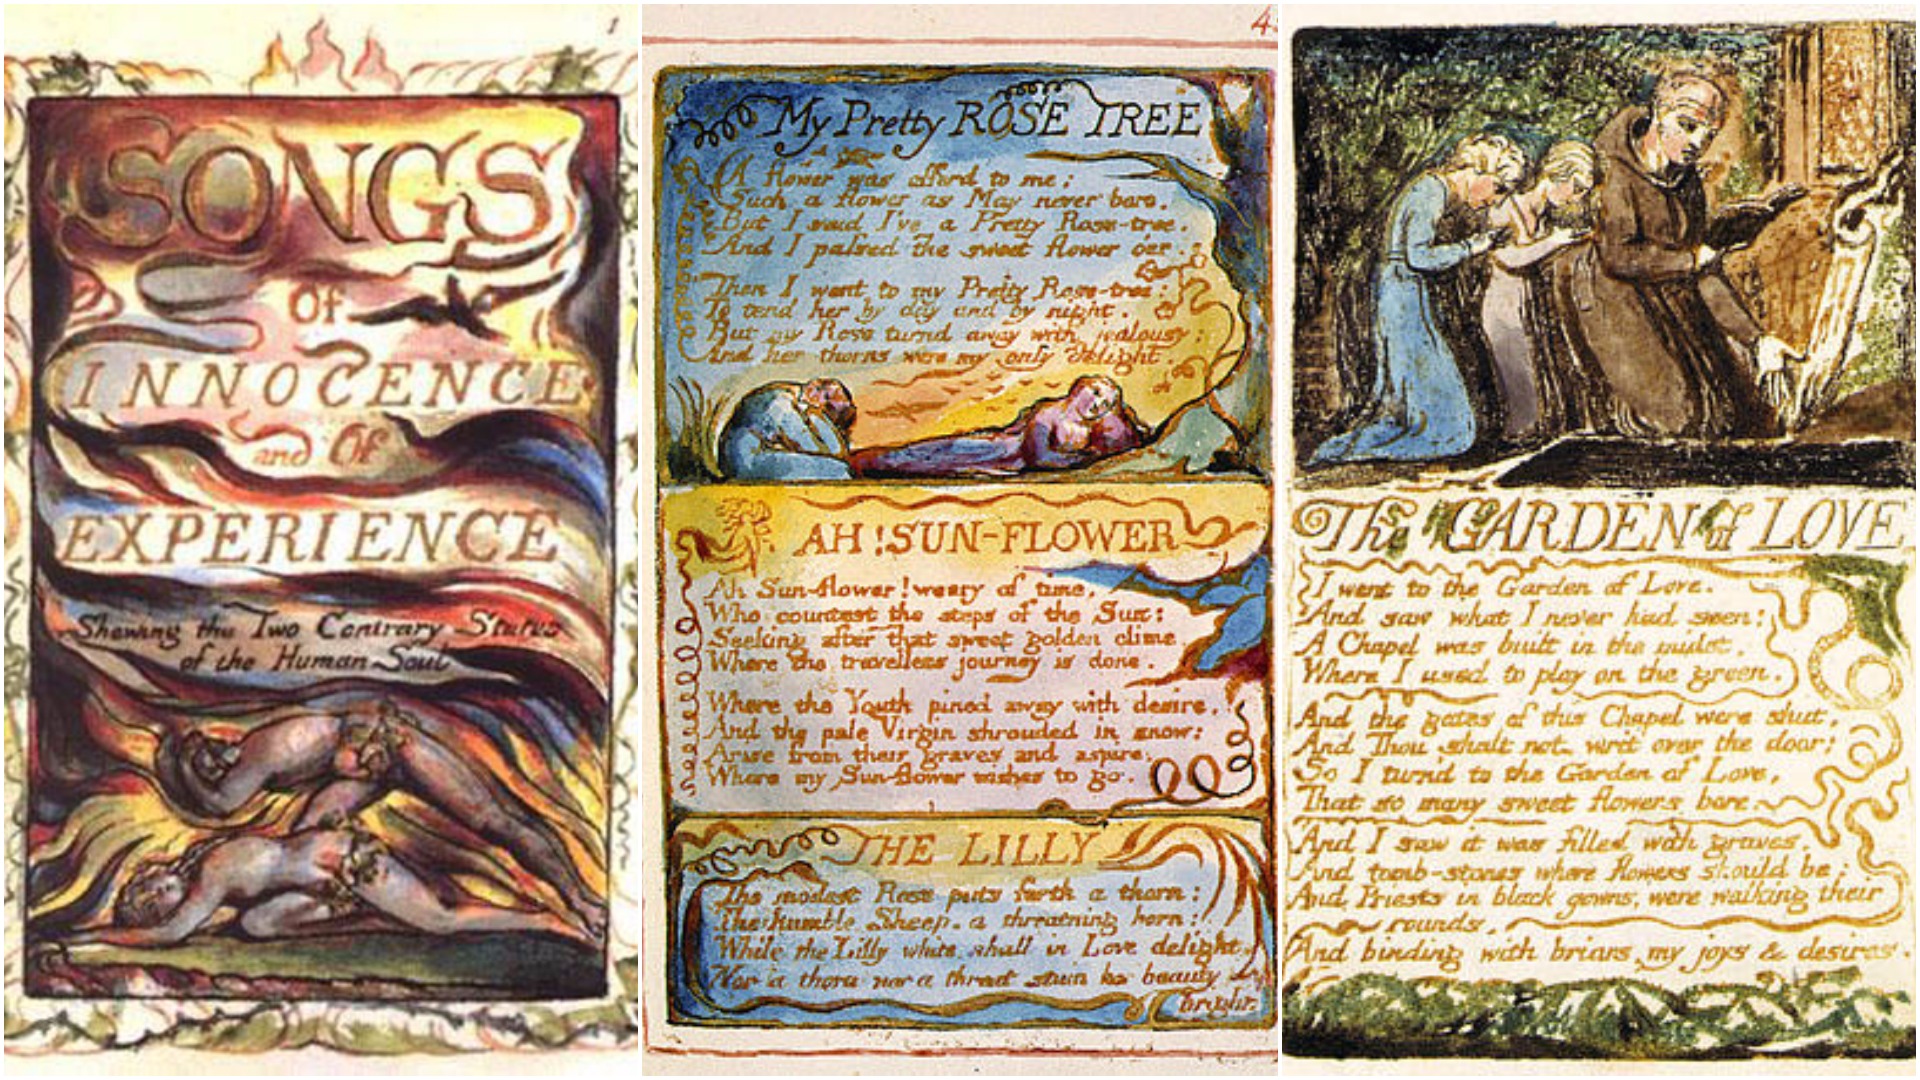 1
SONGS
Of
INNOCENCE
and Of
EXPERIENCE
Shewing the Two Contrary States
of the Human Soul
4
My Pretty ROSE TREE
A flower was offerd to me:
Such a flower as May never bore.
But I said I've a Pretty Rose-tree.
And I passed the sweet flower oer.
Then I went to my Pretty Rose-tree:
To tend her by day and by night.
But my Rose turnd away with jealousy:
And her thorns were my only delight.
AH! SUN-FLOWER
Ah Sun-flower! weary of time,
Who countest the steps of the Sun:
Seeking after that sweet golden clime
Where the travellers journey is done.
Where the Youth pined away with desire,
And the pale Virgin shrouded in snow:
Arise from their graves and aspire,
Where my Sun-flower wishes to go.
THE LILLY
The modest Rose puts forth a thorn:
The humble Sheep, a threatning horn:
While the Lilly white, shall in Love delight,
Nor a thorn nor a threat stain her beauty
bright
The GARDEN of LOVE
I went to the Garden of Love.
And saw what I never had seen:
A Chapel was built in the midst,
Where I used to play on the green.
And the gates of this Chapel were shut,
And Thou shalt not. writ over the door;
So I turn'd to the Garden of Love,
That so many sweet flowers bore.
And I saw it was filled with graves,
And tomb-stones where flowers should be:
And Priests in black gowns, were walking their
rounds,
And binding with briars, my joys & desires.